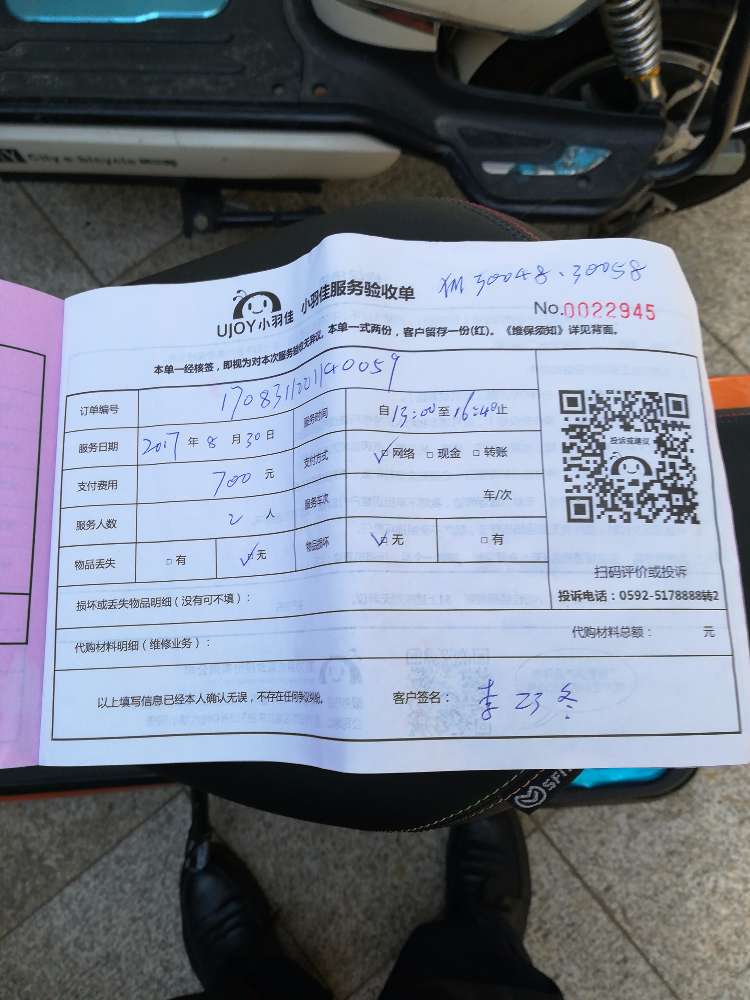 City e bicycle
30048、30058
UJOY小羽佳 小羽佳服务验收单
No.0022945
本单一经核签，即视为对本次服务验收无异议。本单一式两份，客户留存一份(红)。《维保须知》详见背面。
订单编号
服务日期 2017 年 8 月 30 日 服务时间 自 13:00 至 16:40 止
支付费用 700 元 支付方式 ☑ 网络 □ 现金 □ 转账
服务人数 2 人 服务车次 车/次
物品丢失 □ 有 ☑ 无 物品损坏 ☑ 无 □ 有
投诉或建议
扫码评价或投诉
投诉电话：0592-5178888转2
损坏或丢失物品明细（没有可不填）：
代购材料明细（维修业务）： 代购材料总额： 元
以上填写信息已经本人确认无误，不存在任何争议纠纷。 客户签名：